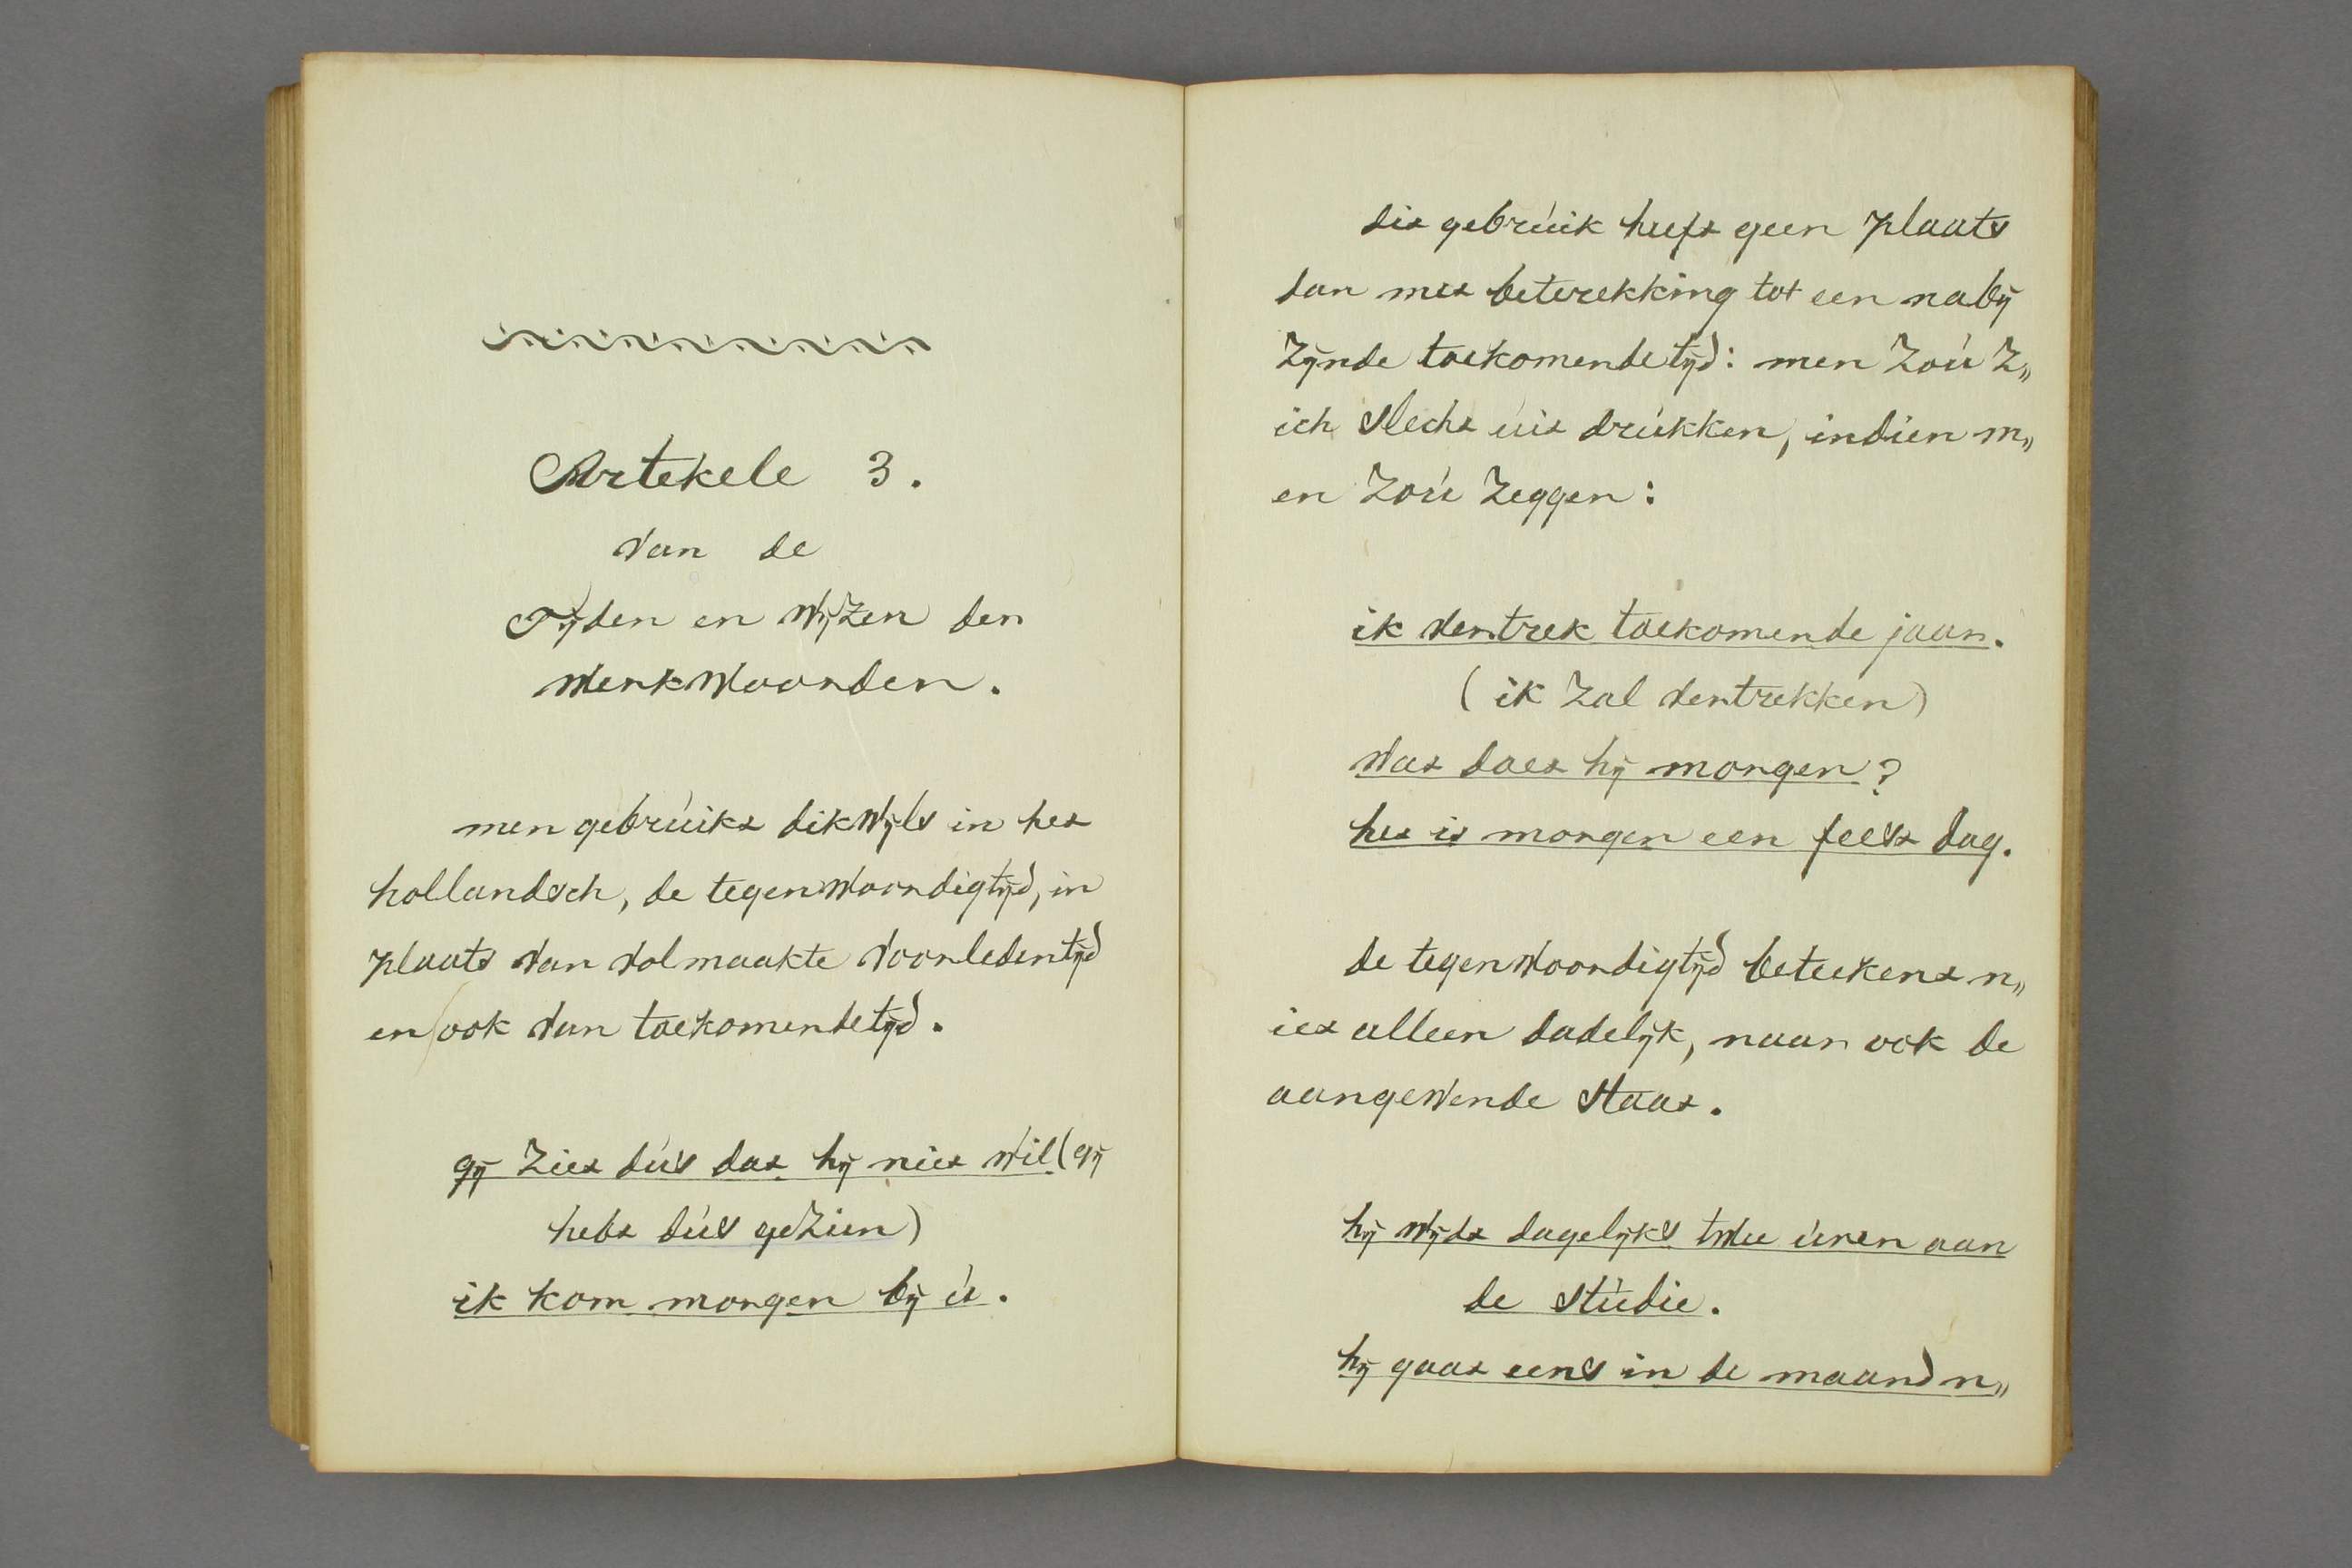 Artekele 3.
van de
Tyden en wyzen der
werkwoorden.
men gebruikt dikwyls in het
hollandsch, de tegenwoordigtyd, in
plaats van volmaakte voorledentyd
en ook van toekomendetyd.
gy ziet dus dat hy niet wil (gy
hebt dus gezien)
ik kom morgen by u.
dit gebruik heeft geen plaats
dan met beterekking tot een naby
zynde toekomendetyd: men zou z„
ich slecht uit drukken, indien m„
en zou zeggen:
ik vertrek toekomende jaar.
(ik zal vertrekken)
wat doet hy morgen?
het is morgen een feest dag.
de tegenwoordigtyd beteekent n„
iet alleen dadelyk, naar ook de
aangewende staat.
hy wydt dagelyks twee uren aan
de studie.
hy gaat eens in de maand n„